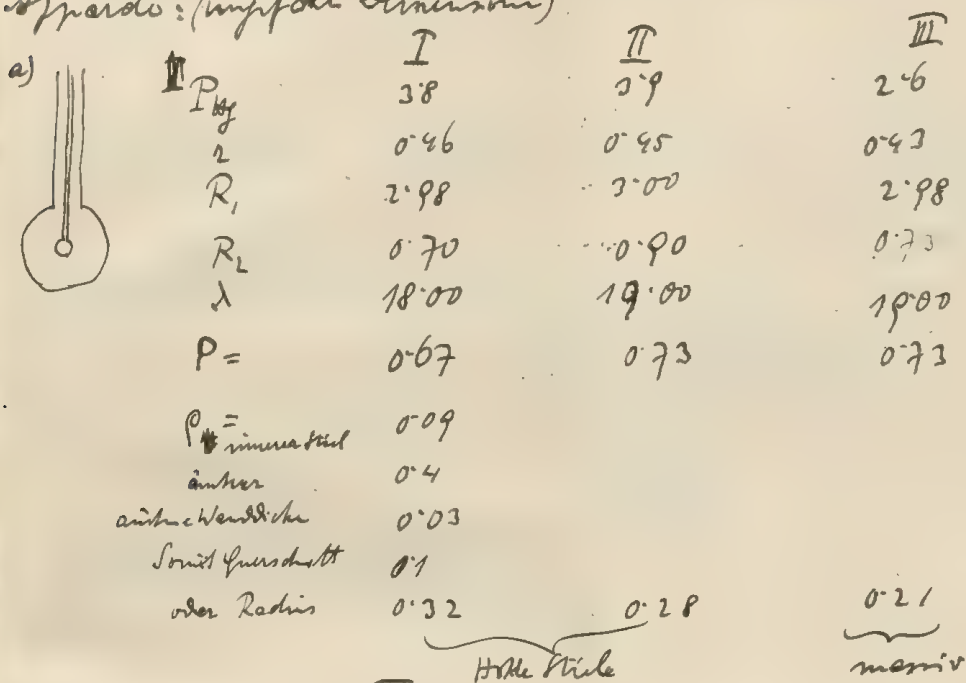 Apparate: (ungefähre Dimensionen)
I II III
a) P_Hg 3·8 3·9 2·6
r 0·46 0·45 0·43
R_1 2·98 3·00 2·98
R_2 0·70 0·90 0·73
λ 18·00 19·00 19·00
P = 0·67 0·73 0·73
ρ = innerer Stiel 0·09
äußerer 0·4
äußere Wanddicke 0·03
Somit Querschnitt 0·1
oder Radius 0·32 0·28 0·21
Hohle Stiele massiv